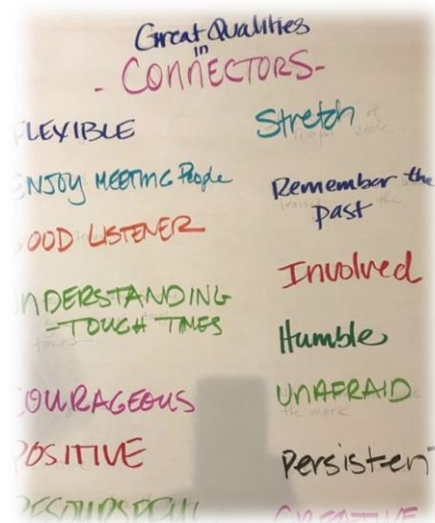 Great Qualities
in
- CONNECTORS-
FLEXIBLE
ENJOY MEETING People
GOOD LISTENER
UNDERSTANDING
-TOUGH TIMES
COURAGEOUS
POSITIVE
RESOURSEFUL
Stretch
Remember the
past
Involved
Humble
UNAFRAID
Persistent
CREATIVE